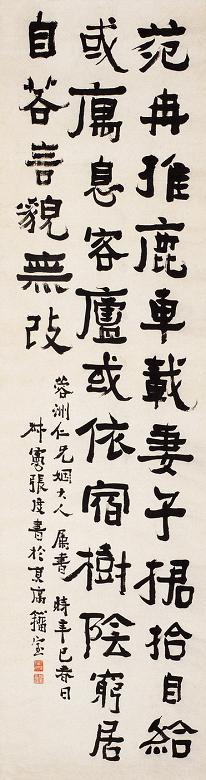 范冉推鹿車載妻子捃拾自給
或寓息客廬或依宿樹陰窮居
自若言貌無改
蓉洲仁兄姻大人屬書 時辛巳春日
叔憲張度書於